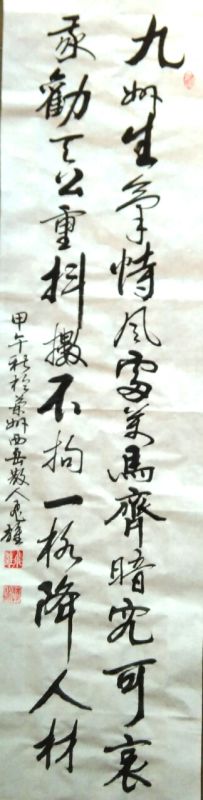 九州生氣恃风雷萬馬齊暗究可哀
我勸天公重抖擻不拘一格降人材
甲午秋於蘭州西岳散人